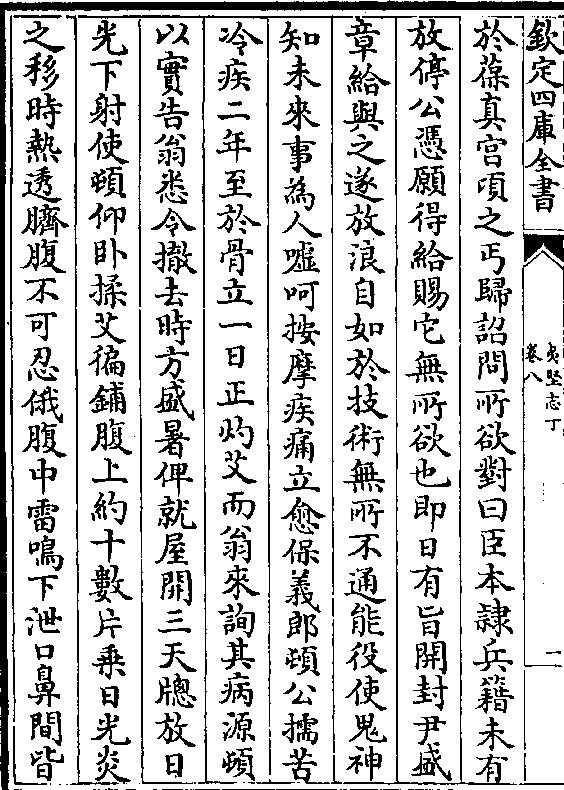 欽定四庫全書
夷堅志丁
卷八
一
於葆真宫頃之丐歸詔問所欲對曰臣本隷兵籍未有
放停公憑願得給賜它無所欲也即日有旨開封尹盛
章給與之遂放浪自如於技術無所不通能役使鬼神
知未來事為人嘘呵按摩疾痛立愈保義郎頓公孺苦
冷疾二年至於骨立一日正灼艾而翁來詢其病源頓
以實告翁悉令撤去時方盛暑俾就屋開三天牎放日
光下射使頓仰卧揉艾徧鋪腹上約十數片乗日光炙
之移時熱透臍腹不可忍俄腹中雷鳴下泄口鼻間皆